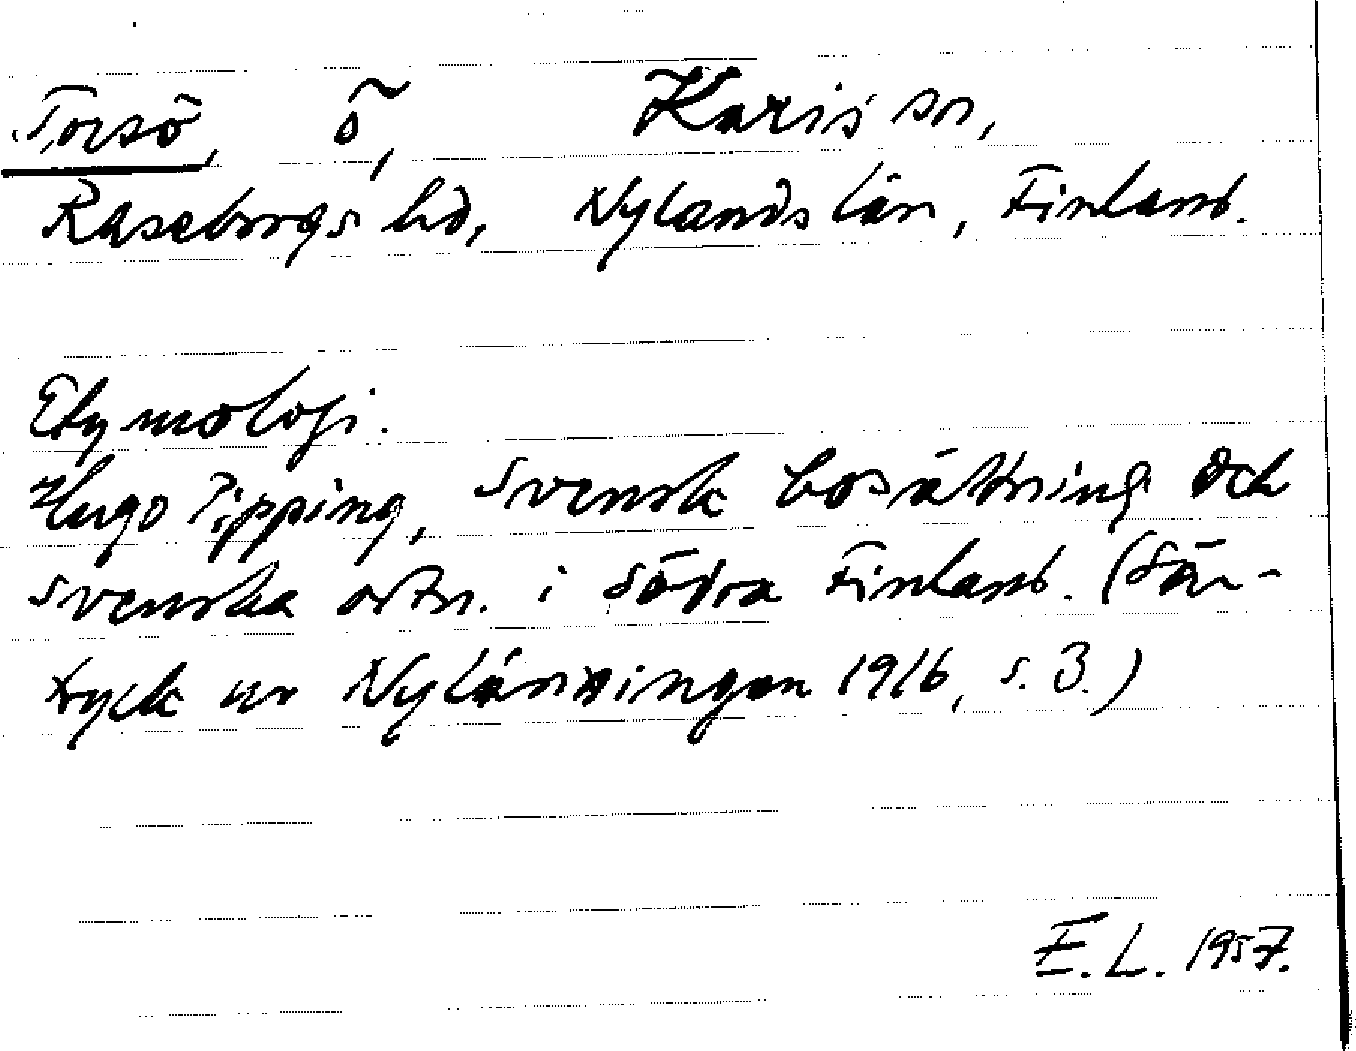 Torsö, ö, Karis sn,
Raseborgs hd, Nylands län, Finland.
Etymologi.
Hugo Pipping, Svensk bosättning och
svenska ortn. i södra Finland. (Sär-
tryck ur Nylänningen 1916, s. 3.)
E. L. 1957.